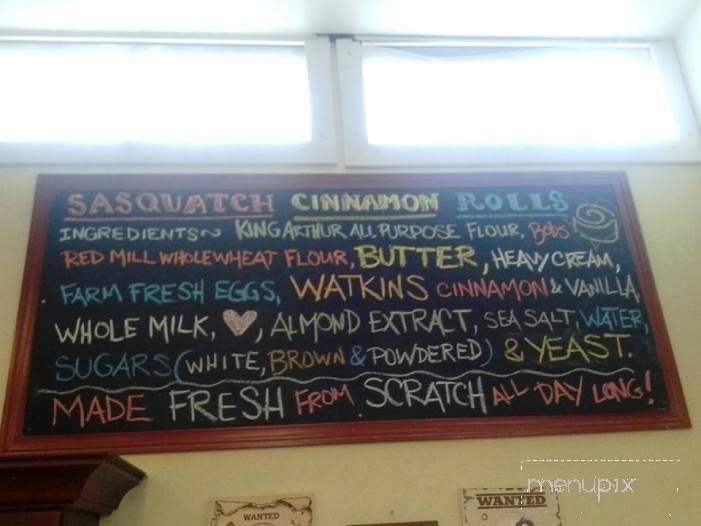 SASQUATCH CINNAMON ROLLS
INGREDIENTS~ KING ARTHUR ALL PURPOSE FLOUR, Bobs
RED MILL WHOLEWHEAT FLOUR, BUTTER, HEAVY CREAM,
FARM FRESH EGGS, WATKINS CINNAMON & VANILLA,
WHOLE MILK, ♡, ALMOND EXTRACT, SEA SALT, WATER,
SUGARS (WHITE, BROWN & POWDERED) & YEAST.
MADE FRESH FROM SCRATCH ALL DAY LONG!
menupix
WANTED
WANTED